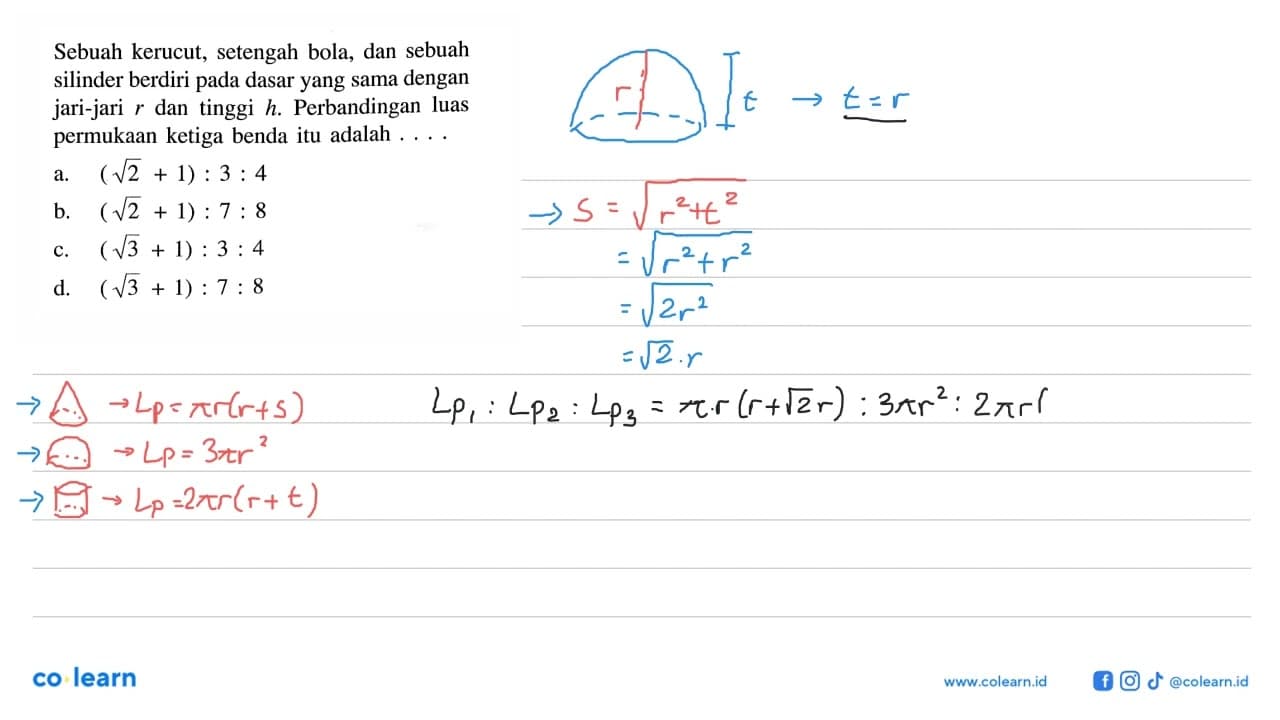 Sebuah kerucut, setengah bola, dan sebuah
silinder berdiri pada dasar yang sama dengan
jari-jari r dan tinggi h. Perbandingan luas
permukaan ketiga benda itu adalah . . . .
a. (√2 + 1) : 3 : 4
b. (√2 + 1) : 7 : 8
c. (√3 + 1) : 3 : 4
d. (√3 + 1) : 7 : 8
r t → t = r
→ s = √r²+t²
= √r²+r²
= √2r²
= √2 . r
→ → Lp = πr(r+s)
→ → Lp = 3πr²
→ → Lp = 2πr(r+t)
Lp₁ : Lp₂ : Lp₃ = π.r (r+√2r) : 3πr² : 2πr(
co learn
www.colearn.id
@colearn.id